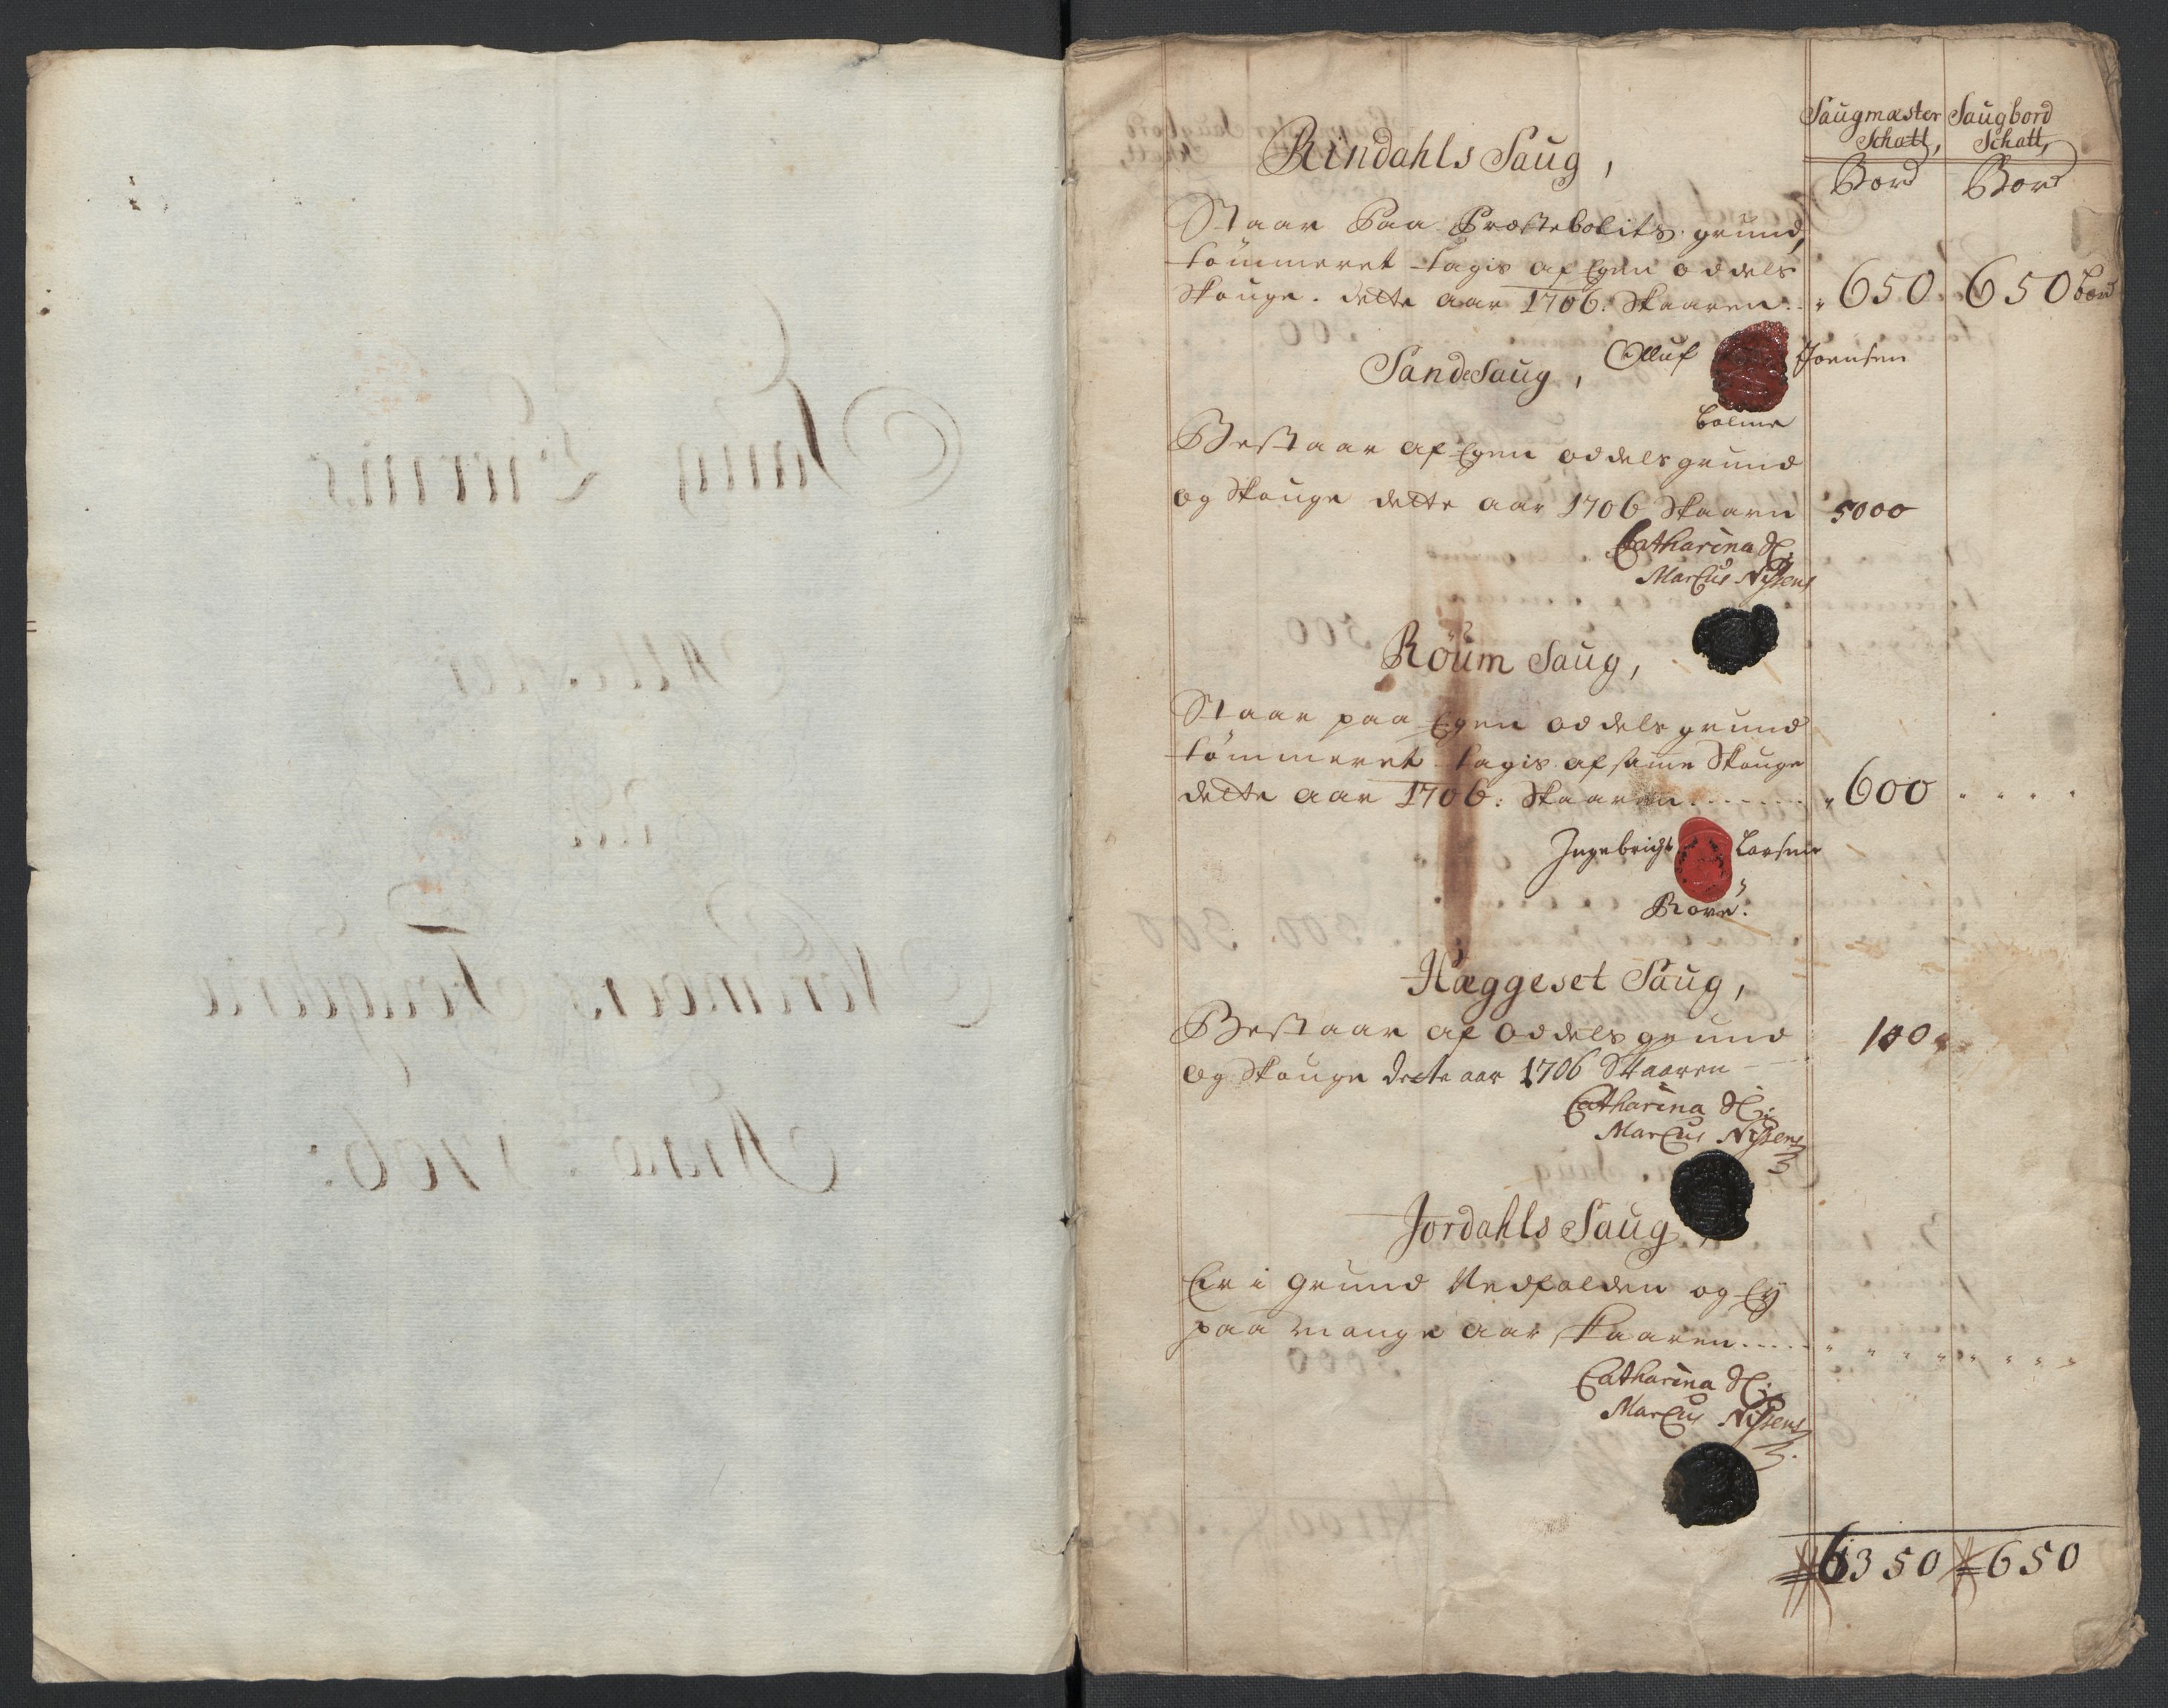 Saugmæster Saugbord
Schatt, Schatt,
Rindahls Saug,
Bord Bord
Staar Paa Præstebolits grund,
tømmeret tagis af Egen oddels
Skouge. dette aar 1706. Skaaren. 650 650 bord
Olluf Joensen
Bolme
SandeSaug,
Bestaar af Egen oddels grund
og Skouge dette aar 1706 Skaaren 5000
Catharina Sl:
Marcus Nissens
Röum Saug,
Staar paa Egen oddels grund
tømmeret tagis af samme Skouge
dette aar 1706: Skaaren....... 600
Ingebricht Larsen
Røve.
Hæggeset Saug,
Bestaar af oddels grund
og Skouge dette aar 1706 Skaaren 100
Catharina Sl:
Marcus Nissens
Jordahls Saug,
Er i grund Nedfalden og Ey
paa mange aar skaaren....
Catharina Sl:
Marcus Nissens
6350 650